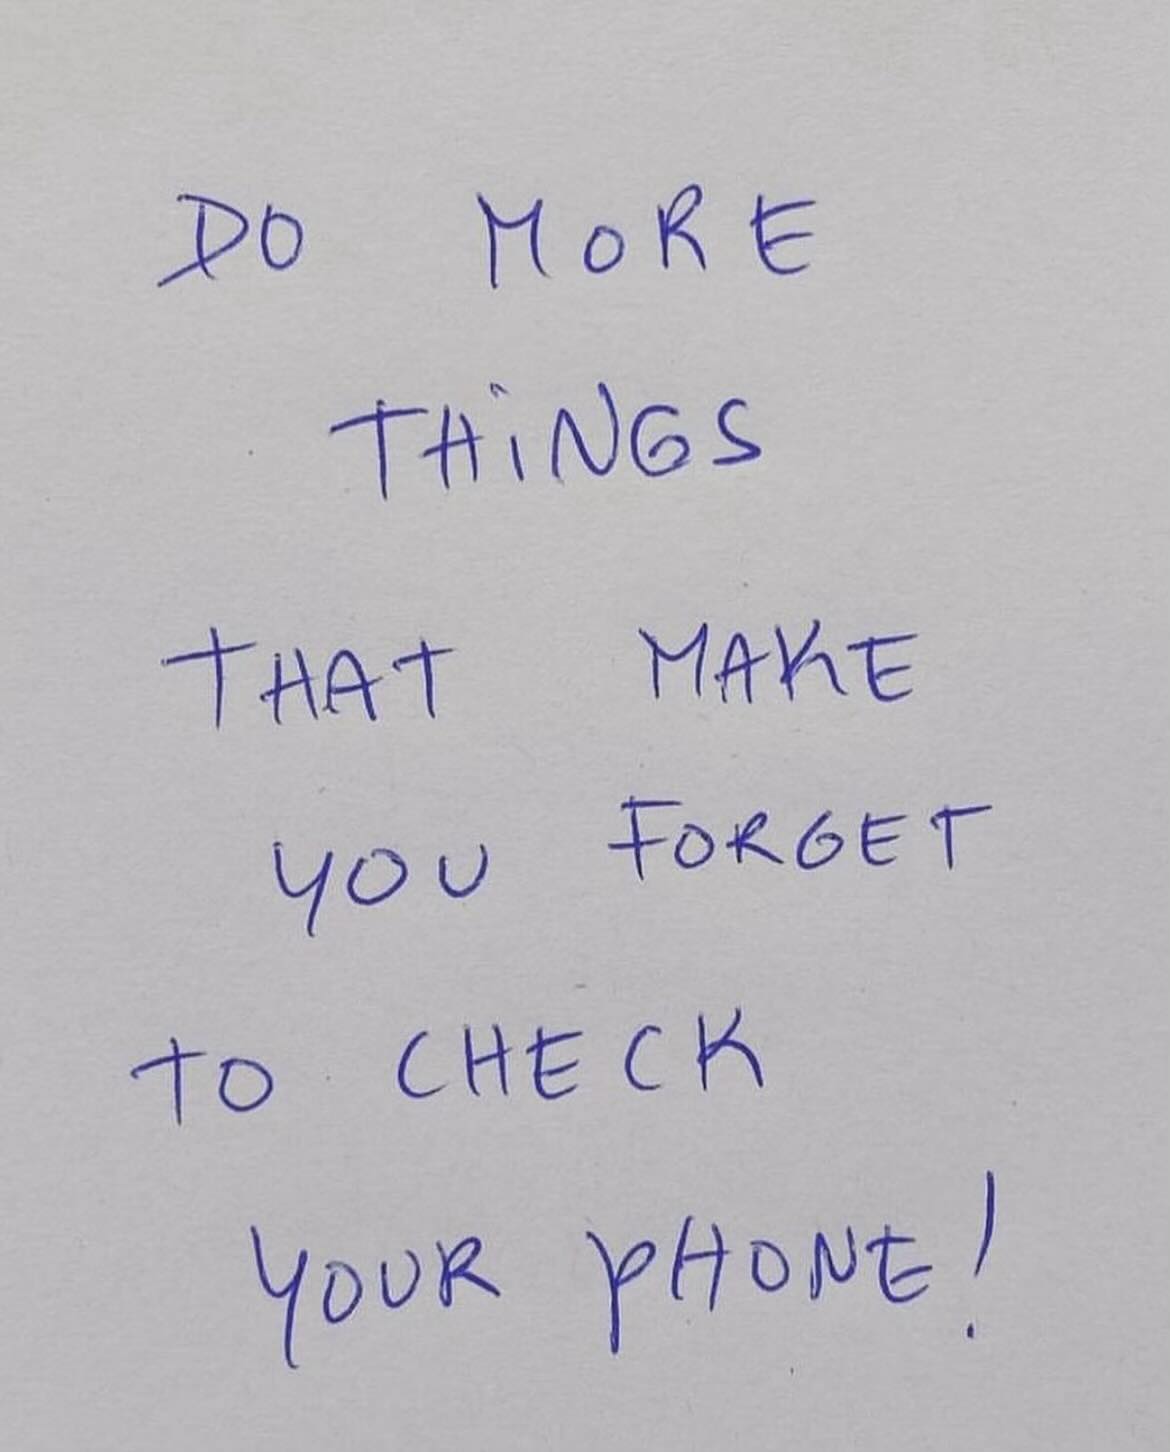 DO MORE
THiNGS
THAT MAKE
YOU FORGET
TO CHECK
YOUR PHONE!